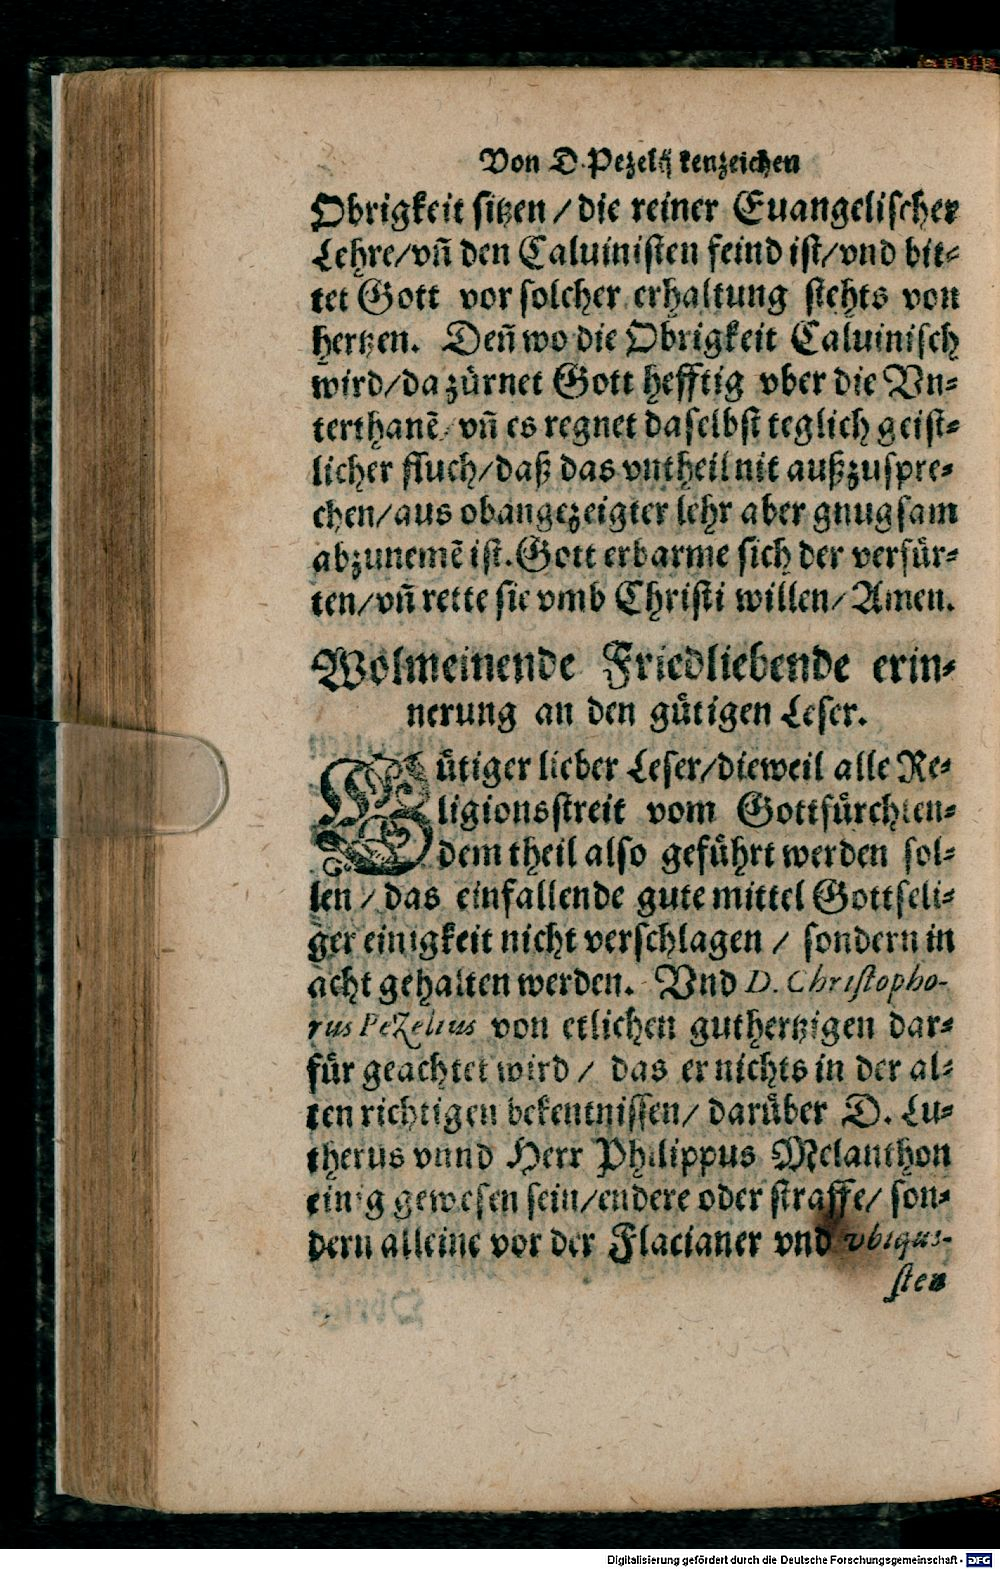 Von D. Pezelij kenzeichen
Obrigkeit sitzen / die reiner Euangelischer
Lehre/vñ den Caluinisten feind ist/vnd bit⸗
tet Gott vor solcher erhaltung stehts von
hertzen. Deñ wo die Obrigkeit Caluinisch
wird/da zürnet Gott hefftig vber die Vn⸗
terthanẽ/vñ es regnet daselbst teglich geist⸗
licher fluch/daß das vntheil nit außzuspre⸗
chen/aus obangezeigter lehr aber gnugsam
abzunemẽ ist. Gott erbarme sich der verfür⸗
ten/vñ rette sie vmb Christi willen/Amen.
Wolmeinende Friedliebende erin⸗
nerung an den gütigen Leser.
Gütiger lieber Leser/dieweil alle Re⸗
ligionsstreit vom Gottfürchten⸗
dem theil also geführt werden sol⸗
len / das einfallende gute mittel Gottseli⸗
ger einigkeit nicht verschlagen / sondern in
acht gehalten werden. Vnd D. Christopho-
rus Pezelius von etlichen guthertzigen dar⸗
für geachtet wird / das er nichts in der al⸗
ten richtigen bekentnissen/ darüber D. Lu⸗
therus vnnd Herr Philippus Melanthon
einig gewesen sein/endere oder straffe/ son⸗
dern alleine vor der Flacianer vnd vbiqui-
sten
Digitalisierung gefördert durch die Deutsche Forschungsgemeinschaft - DFG